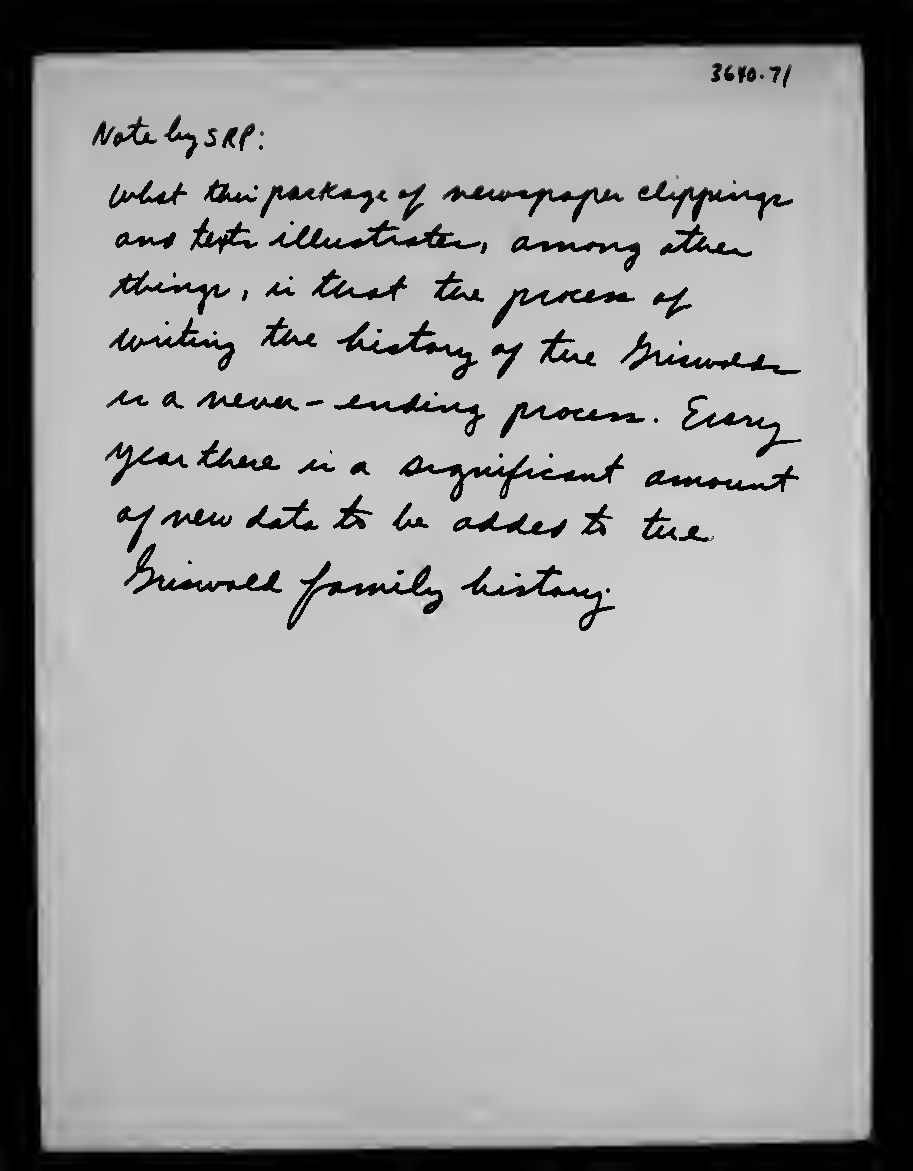 3640.71
Note by SRP:
What this package of newspaper clippings
and texts illustrates, among other
things, is that the process of
writing the history of the Griswolds
is a never-ending process. Every
year there is a significant amount
of new data to be added to the
Griswold family history.